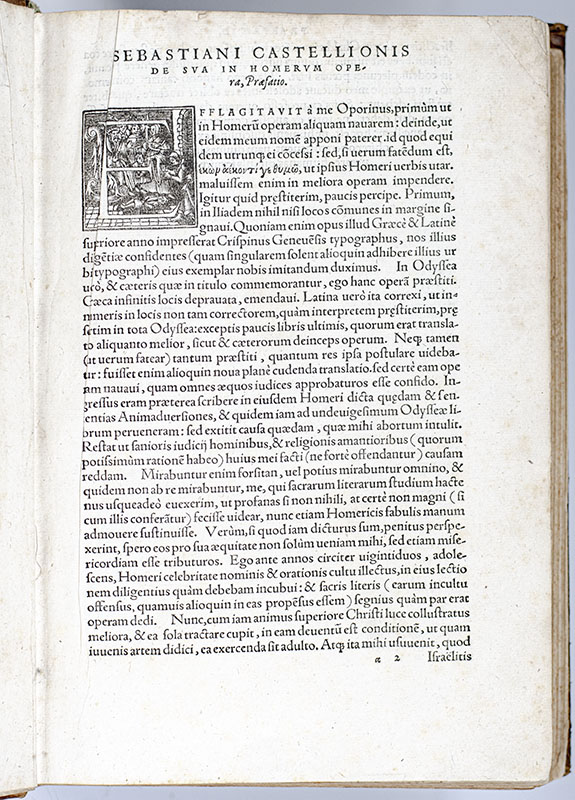 SEBASTIANI CASTELLIONIS
DE SVA IN HOMERVM OPE-
ra, Præfatio.
AFFLAGITAVIT à me Oporinus, primùm ut
in Homerũ operam aliquam nauarem: deinde, ut
eidem meum nomẽ apponi paterer. id quod equi
dem utrunqꝫ ei cõcessi: sed, si uerum fatẽdum est,
ἑκὼν ἀέκοντί γε θυμῷ, ut ipsius Homeri uerbis utar.
maluissem enim in meliora operam impendere.
Igitur quid pręstiterim, paucis percipe. Primum,
in Iliadem nihil nisi locos cõmunes in margine si-
gnaui. Quoniam enim opus illud Græcè & Latinè
superiore anno impresserat Crispinus Geneuẽsis typographus, nos illius
digẽtiæ confidentes (quam singularem solent alioquin adhibere illius ur
bi typographi) eius exemplar nobis imitandum duximus. In Odyssea
uerò, & cæteris quæ in titulo commemorantur, ego hanc operã præstiti.
Græca infinitis locis deprauata, emendaui. Latina uerò ita correxi, ut in-
numeris in locis non tam correctorem, quàm interpretem pręstiterim, prę
sertim in tota Odyssea: exceptis paucis libris ultimis, quorum erat transla-
tio aliquanto melior, sicut & cæterorum deinceps operum. Neqꝫ tamen
(ut uerum fatear) tantum præstiti, quantum res ipsa postulare uideba-
tur: fuisset enim alioquin noua planè cudenda translatio. sed certè eam ope
ram nauaui, quam omnes æquos iudices approbaturos esse confido. In-
gressus eram præterea scribere in eiusdem Homeri dicta quędam & sen-
tentias Animaduersiones, & quidem iam ad undeuigesimum Odysseæ li-
brum perueneram: sed extitit causa quædam, quæ mihi abortum intulit.
Restat ut sanioris iudicij hominibus, & religionis amantioribus (quorum
potissimùm rationẽ habeo) huius mei facti (ne fortè offendantur) causam
reddam. Mirabuntur enim forsitan, uel potius mirabuntur omnino, &
quidem non ab re mirabuntur, me, qui sacrarum literarum studium hacte
nus usqueadeò euexerim, ut profanas si non nihili, at certè non magni (si
cum illis conferãtur) fecisse uidear, nunc etiam Homericis fabulis manum
admouere sustinuisse. Verùm, si quod iam dicturus sum, penitus perspe-
xerint, spero eos pro sua æquitate non solùm ueniam mihi, sed etiam mise-
ricordiam esse tributuros. Ego ante annos circiter uigintiduos, adole-
scens, Homeri celebritate nominis & orationis cultu illectus, in eius lectio
nem diligentius quàm debebam incubui: & sacris literis (earum incultu
offensus, quamuis alioquin in eas propẽsus essem) segnius quàm par erat
operam dedi. Nunc, cum iam animus superiore Christi luce collustratus
meliora, & ea sola tractare cupit, in eam deuentũ est conditionẽ, ut quam
iuuenis artem didici, ea exercenda sit adulto. Atqꝫ ita mihi usuuenit, quod
a 2 Israëlitis